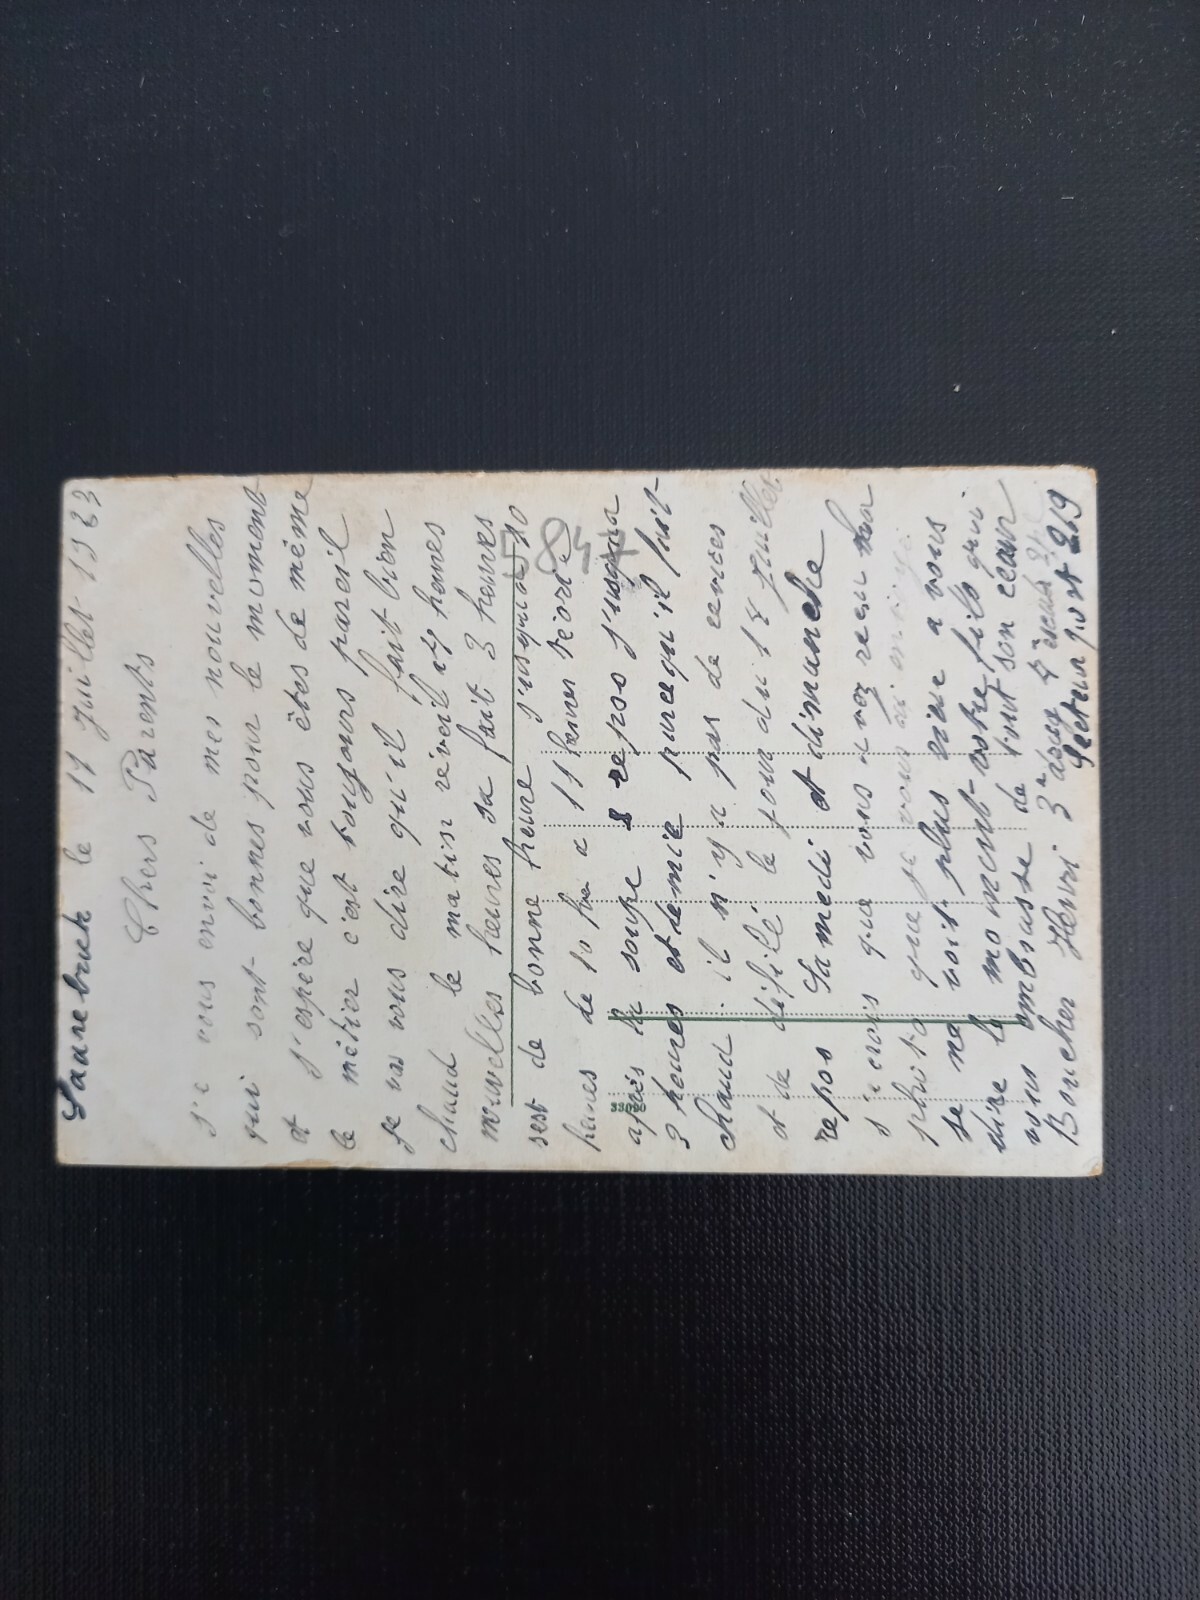 Saarebruck le 11 Juillet 1923
Chers Parents
J'e vous envoi de mes nouvelles
qui sont bonnes pour le moment
et J'espère que vous êtes de même
le métier c'est toujours pareil
Je vas vous dire qu'il fait bien
chaud le matin réveil heures
nouvelles heures sa fait 3 heures
sest de bonne heure J'usqua 10
heures de 10 h a 11 heures
après la soupe repso J'usqua
3 heures et demie parcequ'il fait
chaud il n'y a pas de services
et de défilé le pour du 14 Juillet
repos Samedi et dimanche
J'e crois que vous avez recu ma
photo que je vous ai envoiyé
Je ne voit plus rien a vous
dire le moment votre fils qui
vous embrasse de tout son cœur
Boucher Henri 3e
Secteur post 219
33090
5847